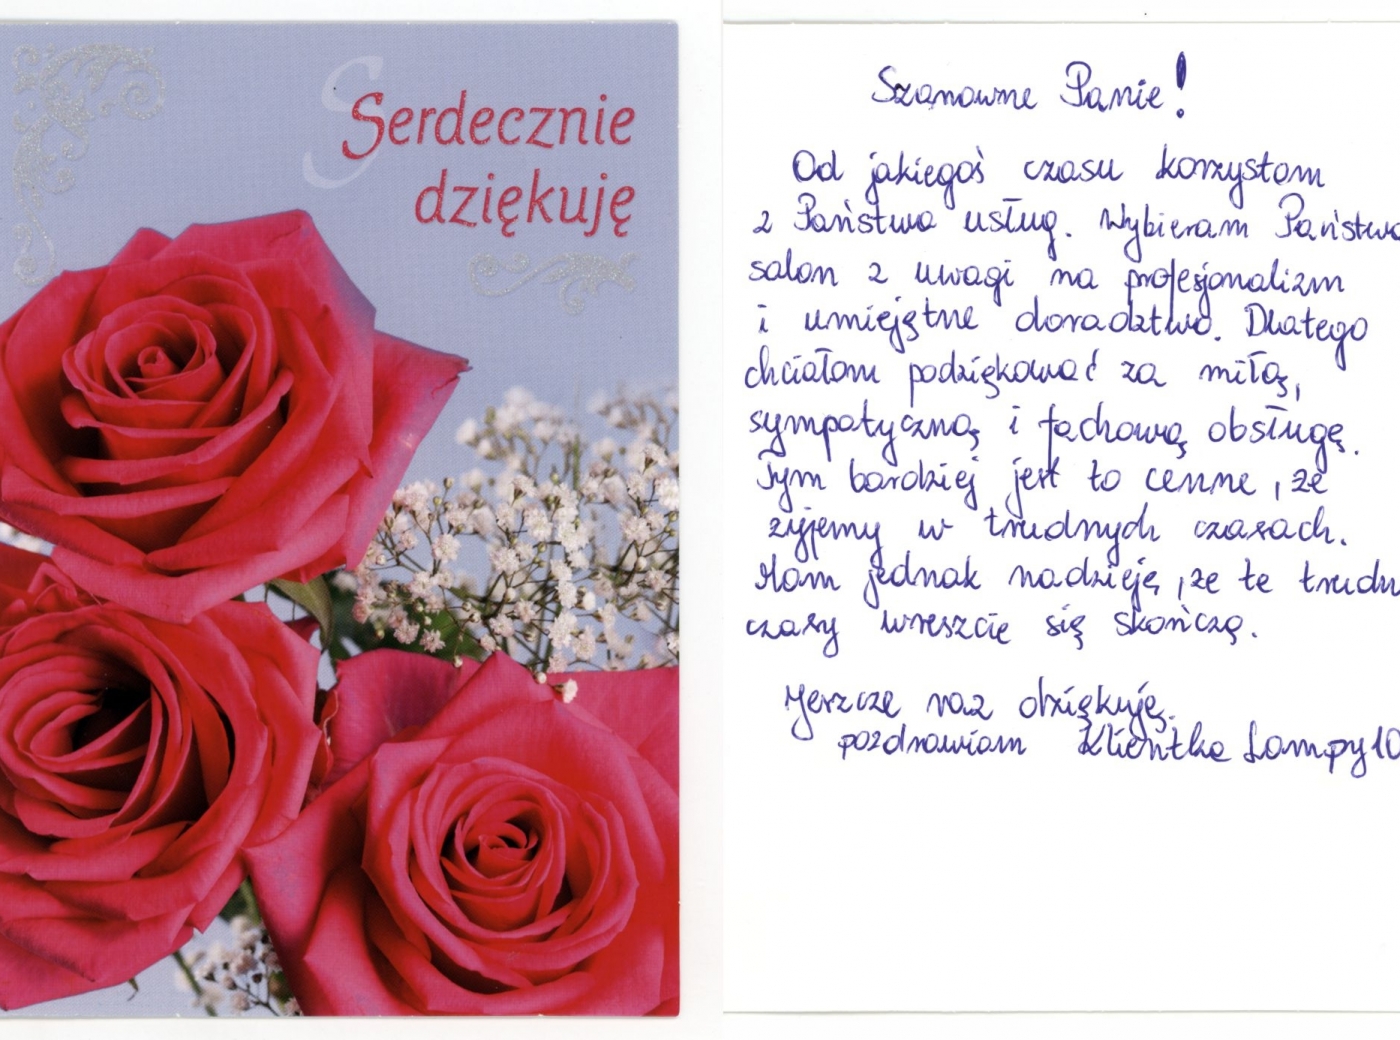 Serdecznie
dziękuję
Szanowne Panie!
Od jakiegoś czasu korzystam
z Państwa usług. Wybieram Państwa
salon z uwagi na profesjonalizm
i umiejętne doradztwo. Dlatego
chciałam podziękować za miłą,
sympatyczną i fachową obsługę.
Tym bardziej jest to cenne, że
żyjemy w trudnych czasach.
Mam jednak nadzieję, że te trudn
czasy wreszcie się skończą.
Jeszcze raz dziękuję.
pozdrawiam Klientka Lampy10